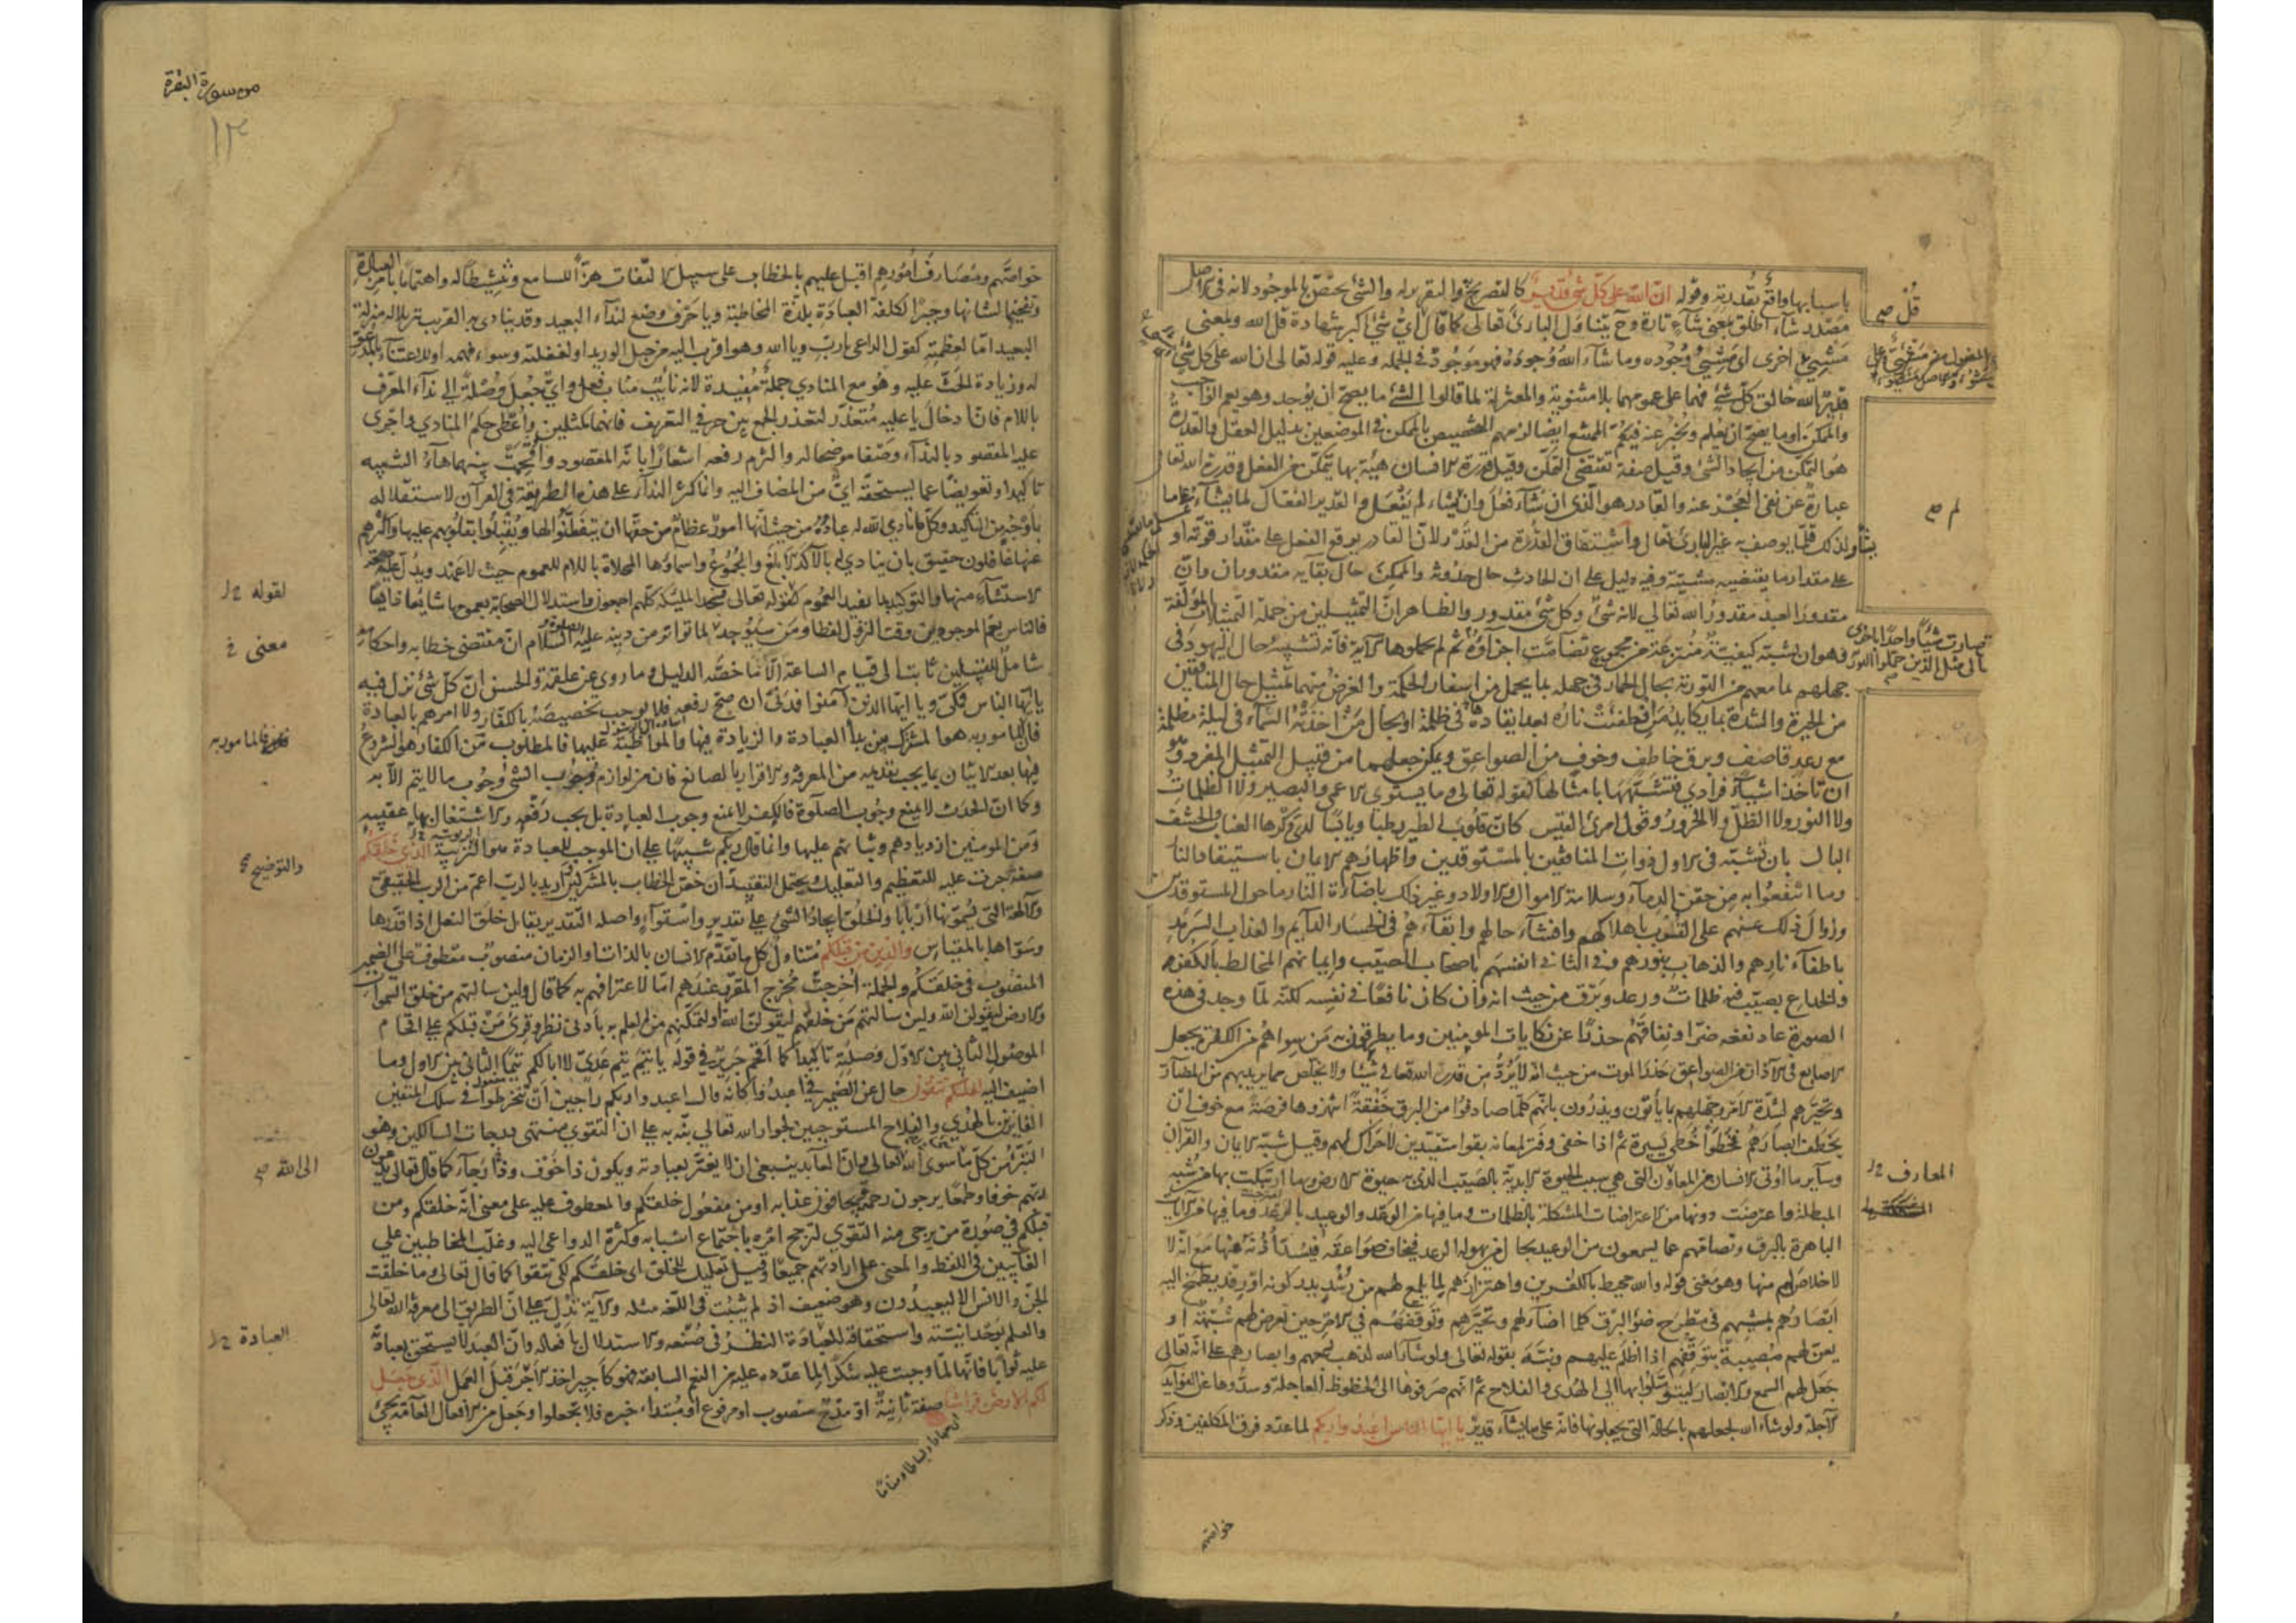 باسبابها واقع بقدرته وقوله ان الله على كل شئ قدير كالتصريح والتقرير له والشئ يختص بالموجود لانه في الاصل
مصدر شاء اطلق بمعنى شاء تارة وح يتناول البارئ تعالى كما قال اي شئ اكبر شهادة قل الله وبمعنى
مشيئ اخرى اى مشيئ وجوده وما شاء الله وجوده فهو موجود في الجملة وعليه قوله تعالى ان الله على كل شئ
قدير الله خالق كل شئ فهما على عمومهما بلا مثنوية والمعتزلة لما قالوا الشئ ما يصح ان يوجد وهو يعم الواجب
والممكن او ما يصح ان يعلم ويخبر عنه فيعم الممتنع ايضا لزمهم التخصيص بالممكن في الموضعين بدليل العقل والقدرة
هو التمكن من ايجاد الشئ وقيل صفة تقتضى التمكن وقيل قدرة الانسان هيئة بها يتمكن من الفعل وقدرة الله تعالى
عبارة عن نفى العجز عنه والقادر هو الذى ان شاء فعل وان لم يشاء لم يفعل والقدير الفعال لما يشاء على ما
يشأ ولذلك قلما يوصف به غير البارئ تعالى واشتقاق القدرة من القدر لان القادر يوقع الفعل على مقدار قوته او
على مقدار ما يقتضيه مشيته وفيه دليل على ان الحادث حال حدوثه والممكن حال بقايه مقدوران وان
مقدور العبد مقدور الله تعالى لانه شئ وكل شئ مقدور والظاهر ان التمثيلين من جملة التمثيلات المؤلفة
وهو ان يشبه كيفية منتزعة من مجموع تضامت اجزاؤه ثم لم يحملوها الاية فانه تشبيه حال اليهود في
جهلهم بما معهم من التورية بحال الحمار في جهله بما يحمل من اسفار الحكمة والغرض منهما تمثيل حال المنافقين
من الحيرة والشدة بما يكابده من طفئت ناره بعد ايقادها في ظلمة او بحال من اخذته السماء في ليلة مظلمة
مع رعد قاصف وبرق خاطف وخوف من الصواعق ويمكن جعلهما من قبيل التمثيل المفرد وهو
ان تاخذ اشياء فرادى فتشبهها بامثالها كقوله تعالى وما يستوى الاعمى والبصير ولا الظلمات
ولا النور ولا الظل ولا الحرور وقول امرئ القيس كان قلوب الطير رطبا ويابسا لدى وكرها العناب والحشف
البالى بان تشبه في الاول ذوات المنافقين بالمستوقدين واظهارهم الايمان باستيقاد النار
وما انتفعوا به من حقن الدماء وسلامة الاموال والاولاد وغير ذلك باضاءة النار ما حول المستوقدين
وزوال ذلك عنهم على القرب باهلاكهم وافشاء حالهم وابقاءهم في الخسار الدايم والعذاب السرمد
باطفاء نارهم والذهاب بنورهم وفي الثانى انفسهم باصحاب الصيب وايمانهم المخالط بالكفر
والخداع بصيب فيه ظلمات ورعد وبرق من حيث انه وان كان نافعا في نفسه لكنه لما وجد في هذه
الصورة عاد نفعه ضرا ونفاقهم حذرا عن نكايات المومنين وما يطرقون به من سواهم من الكفرة بجعل
الاصابع في الاذان من الصواعق حذر الموت من حيث انه لا يرد من قدر الله تعالى شيئا ولا يخلص مما يريد بهم من المضار
وتحيرهم لشدة الامر وجهلهم بما يأتون ويذرون بانهم كلما صادفوا من البرق خفقة انتهزوها فرصة مع خوف ان
يخطف ابصارهم فخطوا خطى يسيرة ثم اذا خفى وفتر لمعانه بقوا متقيدين لا حراك لهم وقيل شبه الايمان والقرآن
وساير ما اوتى الانسان من المعاون التى هي سبب الحيوة الابدية بالصيب الذى به حيوة الارض وما ارتبكت بها من شبه
المبطلة واعترضت دونها من الاعتراضات المشكلة بالظلمات وما فيها من الوعد والوعيد بالرعد وما فيها من الآيات
الباهرة بالبرق وتصامهم عما يسمعون من الوعيد بحال من يهوله الرعد فيخاف صواعقه فيسد اذنه عنها مع انه لا
خلاص لهم منها وهو معنى قوله والله محيط بالكفرين واهتزازهم لما يلمع لهم من رشد يدركونه او رفد يطمح اليه
ابصارهم بمشيهم في مطرح ضوء البرق كلما اضاء لهم وتحيرهم وتوقفهم في الامر حين تعرض لهم شبهة او
يعن لهم مصيبة بتوقفهم اذا اظلم عليهم ونبه بقوله تعالى ولو شاء الله لذهب بسمعهم وابصارهم على انه تعالى
جعل لهم السمع والابصار ليتوسلوا بها الى الهدى والفلاح ثم انهم صرفوها الى الحظوظ العاجلة وسدوها عن الفوايد
الآجلة ولو شاء الله لجعلهم بالحالة التى يجعلونها فانه على ما يشاء قدير يا ايها الناس اعبدوا ربكم لما عدد فرق المكلفين وذكر
خواصهم
قل صح
لم صح
فصارت شيئا واحدا باخرى
الى مثل الذين حملوا التورية صح
المعارف
من سورة البقرة
١٣
خواصهم ومصارف امورهم اقبل عليهم بالخطاب على سبيل الالتفات هزا للسامع وتنشيطا له واهتماما بامر العبادة
وتفخيما لشانها وجبرا لكلفة العبادة بلذة المخاطبة ويا حرف وضع لنداء البعيد وقد ينادى به القريب تنزيلا له منزلة
البعيد اما لعظمته كقول الداعى يا رب ويا الله وهو اقرب اليه من حبل الوريد او لغفلته وسوء فهمه او للاعتناء بالمدعو
له وزيادة الحث عليه وهو مع المنادى جملة مفيدة لانه نائب مناب فعل واى جعل وصلة الى نداء المعرف
باللام فان ادخال يا عليه متعذر لتعذر الجمع بين حرفي التعريف فانهما كمثلين واعطى حكم المنادى واجرى
عليه المقصود بالنداء وصفا موضحا له والتزم رفعه اشعارا بانه المقصود واقحمت بينهما هاء التنبيه
تاكيدا وتعويضا عما يستحقه اى من المضاف اليه وانما كثر النداء على هذه الطريقة في القرآن لاستقلاله
باوجه من التاكيد وكل ما نادى الله له عباده من حيث انها امور عظام من حقها ان يتفطنوا لها ويقبلوا بقلوبهم عليها واكثرهم
عنها غافلون حقيق بان ينادى له بالآكد الابلغ والجموع واسماؤها المحلاة باللام للعموم حيث لا عهد ويدل عليه صحة
الاستثناء منها والتوكيد بما يفيد العموم كقوله تعالى فسجد الملئكة كلهم اجمعون واستدلال الصحابة بعمومها شايعا ذايعا
فالناس يعم الموجودين وقت النزول لفظا ومن سيوجد لما تواتر من دينه عليه الصلوة السلام ان مقتضى خطابه واحكامه
شامل للقبيلين ثابت الى قيام الساعة الا ما خصه الدليل وما روى عن علقمة والحسن ان كل شئ نزل فيه
يا ايها الناس فمكى ويا ايها الذين آمنوا فمدنى ان صح رفعه فلا يوجب تخصيصه بالكفار ولا امرهم بالعبادة
فان المامور به هو المشترك بين بدأ العبادة والزيادة فيها والمواظبة عليها فالمطلوب من الكفار هو الشروع
فيها بعد الاتيان بما يجب تقديمه من المعرفة والاقرار بالصانع فان من لوازم وجوب الشئ وجوب ما لا يتم الا به
وكما ان الحدث لا يمنع وجوب الصلوة فالكفر لا يمنع وجوب العبادة بل يجب رفعه والاشتغال بها عقيبه
ومن المومنين ازديادهم وثباتهم عليها وانما قال ربكم تنبيها على ان الموجب للعبادة هو الربوبية الذى خلقكم
صفة جرت عليه للتعظيم والتعليل ويحتمل التقييد ان خص الخطاب بالمشركين واريد بالرب اعم من الرب الحقيقى
والآلهة التى يسمونها اربابا والخلق ايجاد الشئ على تقدير واستواء واصله التقدير يقال خلق النعل اذا قدرها
وسواها بالمقياس والذين من قبلكم متناول كل ما تقدم الانسان بالذات او الزمان منصوب معطوف على الضمير
المنصوب في خلقكم والجملة اخرجت مخرج المقرر عندهم اما لاعترافهم به كما قال ولئن سالتهم من خلق السموات
والارض ليقولن الله ولئن سالتهم من خلقهم ليقولن الله او لتمكنهم من العلم به بأدنى نظر وقرئ من قبلكم على اقحام
الموصول الثانى بين الاول وصلته تاكيدا كما اقحم جرير في قوله يا تيم تيم عدى لا ابا لكم تيما الثانى بين الاول وما
اضيف اليه لعلكم تتقون حال عن الضمير في اعبدوا كانه قال اعبدوا ربكم راجين ان تنخرطوا في سلك المتقين
الفايزين بالهدى والفلاح المستوجبين لجوار الله تعالى نبه به على ان التقوى منتهى درجات السالكين وهو
التبرؤ من كل ما سوى الله تعالى وان العابد ينبغى ان لا يغتر بعبادته ويكون ذا خوف ورجاء كما قال تعالى يدعون
ربهم خوفا وطمعا يرجون رحمته ويخافون عذابه او من مفعول خلقكم والمعطوف عليه على معنى انه خلقكم ومن
قبلكم في صورة من يرجى منه التقوى لترجح امره باجتماع اسبابه وكثرة الدواعى اليه وغلب المخاطبين على
الغايبين في اللفظ والمعنى على ارادتهم جميعا وقيل تعليل للخلق اى خلقكم لكى تتقوا كما قال تعالى وما خلقت
الجن والانس الا ليعبدون وهو ضعيف اذ لم يثبت في اللغة مثله والآية تدل على ان الطريق الى معرفة الله تعالى
والعلم بوحدانيته واستحقاقه للعبادة النظر في صنعه والاستدلال بافعاله وان العبد لا يستحق بعبادته
عليه ثوابا فانها لما وجبت عليه شكرا لما عدده عليه من النعم السابقة فهو كاجير اخذ الاجر قبل العمل الذى جعل
لكم الارض فراشا صفة ثانية او مدح منصوب او مرفوع او مبتداء خبره فلا تجعلوا وجعل من الافعال العامة يجئ
لقوله
معنى
فالمامور به
والتوضيح
الى الله صح
العبادة